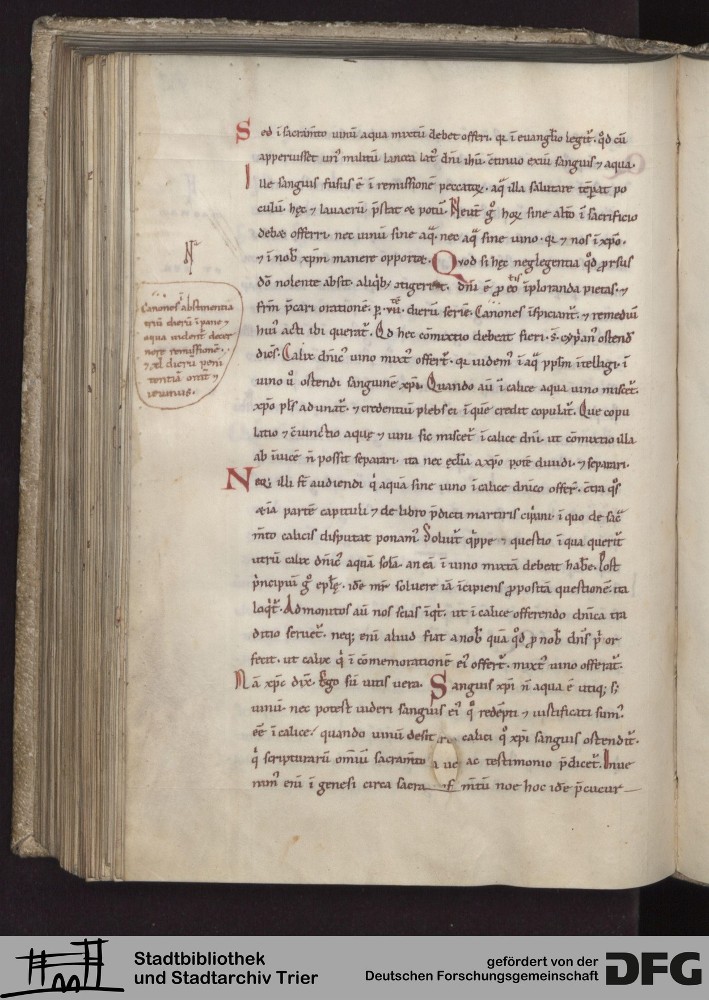 Sed ī sacram̄to uinū aqua mixtū debet offerri. qr ī euangl̄io legit᷑. qd̄ cū
apperuisset unꝰ militū lancea latꝰ dn̄i ih̄u. c̄tinuo exiit sanguis ⁊ aqua.
Ille sanguis fusus ē ī remissionē peccatoꝝ. aq̄ illa salutare tēpat po
culū. hęc ⁊ lauacrū p̄stat et potū. Neut᷑ g̊ hoꝝ sine alt̄o ī sacrificio
debet offerri. nec uinū sine aq̄. nec aq̄ sine uino. qr ⁊ nos ī xp̄o.
⁊ ī nob̄ xp̄m manere oportet. Quod si hęc neglegentia qd̄ prsus
dō nolente absit. aliqb; ɔtigerit. dn̄i ē ꝓ eo īploranda pietas. ⁊
frm̄ p̄cari orationē. p. uii. dierū seriē. Canones īspiciant᷑. ⁊ remediū
huiꝰ acti ibi querat᷑. Qd̄ hec cōmixtio debeat fieri. s̄. cyp̄anꝰ ostend̄
dicēs. Calix dn̄icꝰ uino mixtꝰ offert᷑. qr uidemꝰ ī aq̄ pp̄lm̄ ītelligi. ī
uino ů ostendi sanguinē xp̄i. Quando aū ī calice aqua uino miscet᷑.
xp̄o pl̄s adunat᷑. ⁊ credentiū plebs ei ī quē credit copulat᷑. Que copu
latio ⁊ c̄iunctio aquę ⁊ uini sic miscet᷑ ī calice dn̄i. ut cōmixtio illa
ab īuicē n̄ possit separari. ita nec ęcl̄ia a xp̄o potē diuidi. ⁊ separari.
Neq; illi st̄ audiendi q̇ aquā sine uino ī calice dn̄ico offer̄. c̄tra qs̄
etiā partē capituli ⁊ de libro p̄dicti martiris cip̄iani. ī quo de sac̄
m̄to calicis disputat ponam̄. Soluit᷑ qippe ⁊ questio ī qua querit᷑
utrū calix dn̄icꝰ aquā solā. an eā ī uino mixtā debeat hab̄e. Post
p̄ncipiū g̊ epl̄ę. idē mr̄ soluere iā īcipiens ꝓpositā questionē. ita
loqt᷑. Admonitos aū nos scias īqt᷑. ut ī calice offerendo dn̄ica tra
ditio seruet᷑. neq; enī aliud fiat a nob̄ quā qd̄ ꝓ nob̄ dn̄s p̄or
fecit. ut calix q̇ ī cōmemorationē eiꝰ offert᷑. mixtꝰ uino offerat᷑.
Nā xp̄c dix̄. Ego sū uitis uera. Sanguis xp̄i n̄ aqua ē utiq; s;
uinū. nec potest uideri sanguis eiꝰ q̊ redēpti ⁊ iustificati sumꝰ.
eē ī calice. quando uinū desit calici q̊ xp̄i sanguis ostendit᷑.
q̇ scripturarū omīu sacram̄to ac testimonio p̄dicet᷑. Inue
nimꝰ enī ī genesi circa sacra m̄tū noe hoc idē p̄cucur
N̄
Canones abstinentia
triū dierū ī pane ⁊
aqua uident᷑ decer
nere remissionē.
⁊ xl dierū peni
tentiā om̄t ⁊
ieiuniis.
Stadtbibliothek
und Stadtarchiv Trier
gefördert von der
Deutschen Forschungsgemeinschaft
DFG